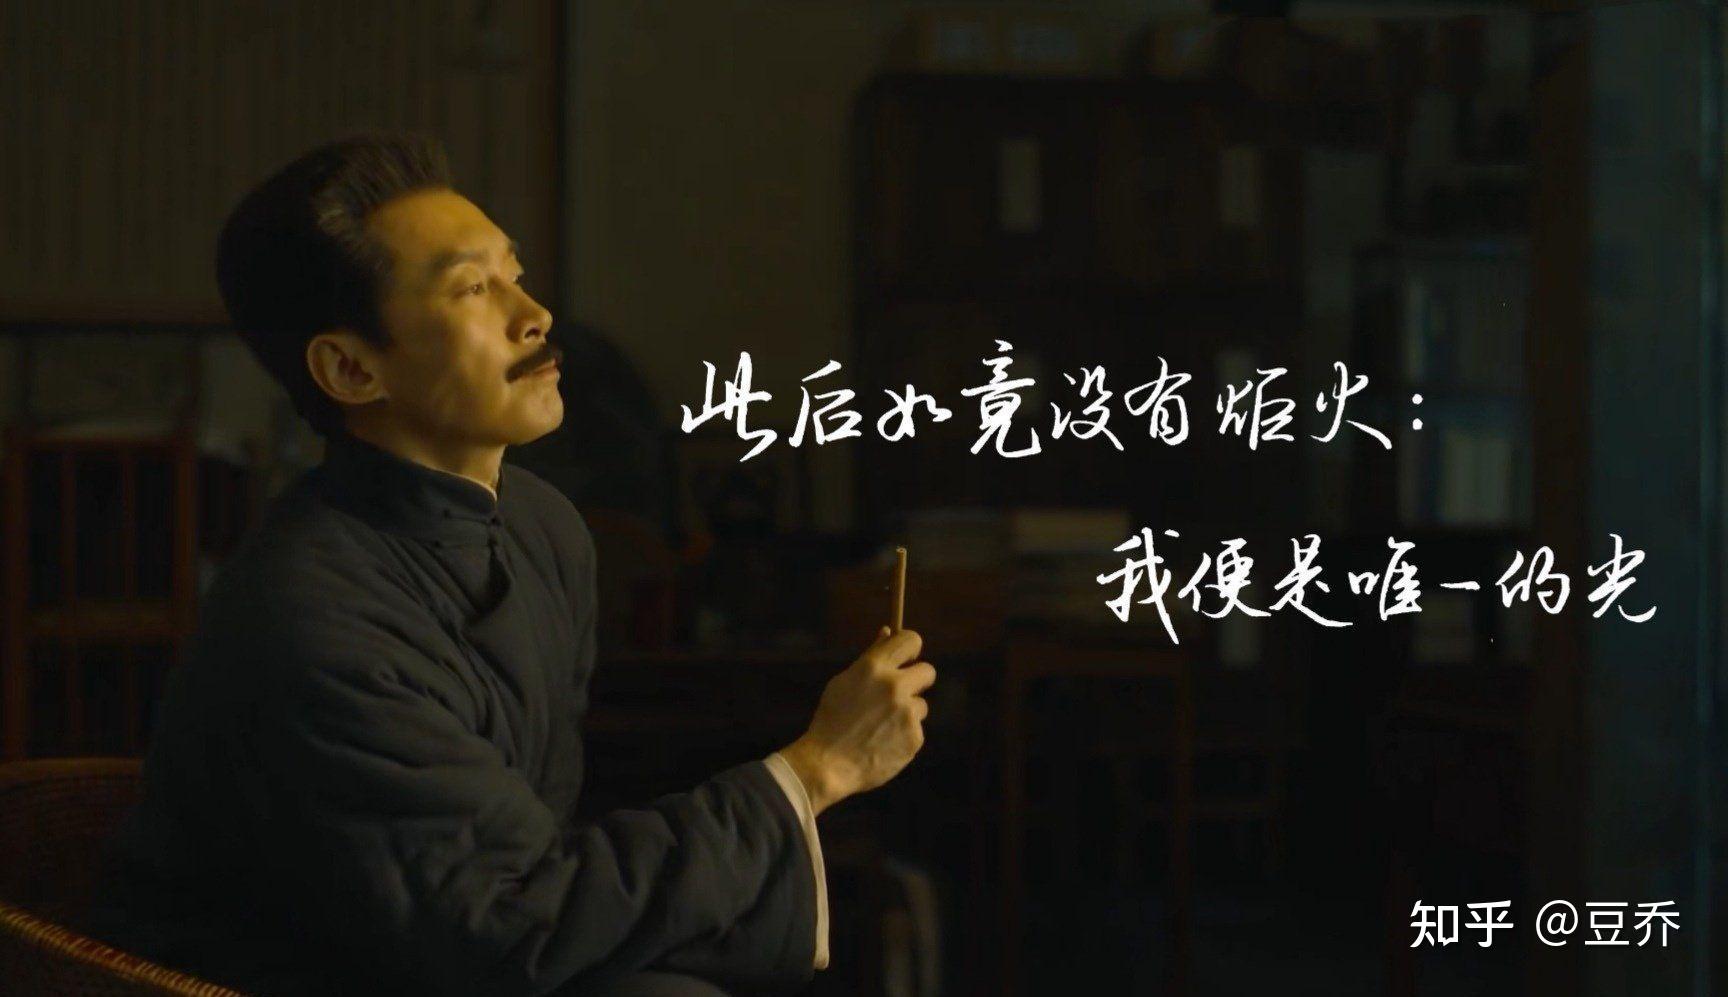 此后如竟没有炬火：
我便是唯一的光
知乎 @豆乔